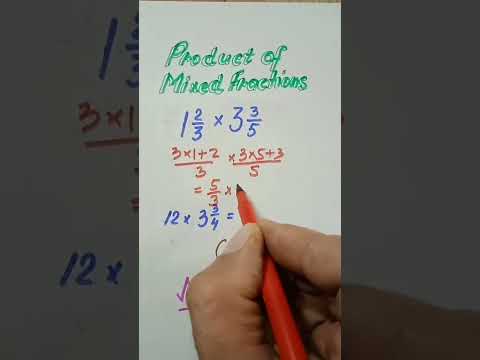 Product of
Mixed Fractions
1 2/3 × 3 3/5
3×1+2/3 × 3×5+3/5
= 5/3 ×
12 × 3 3/4 =